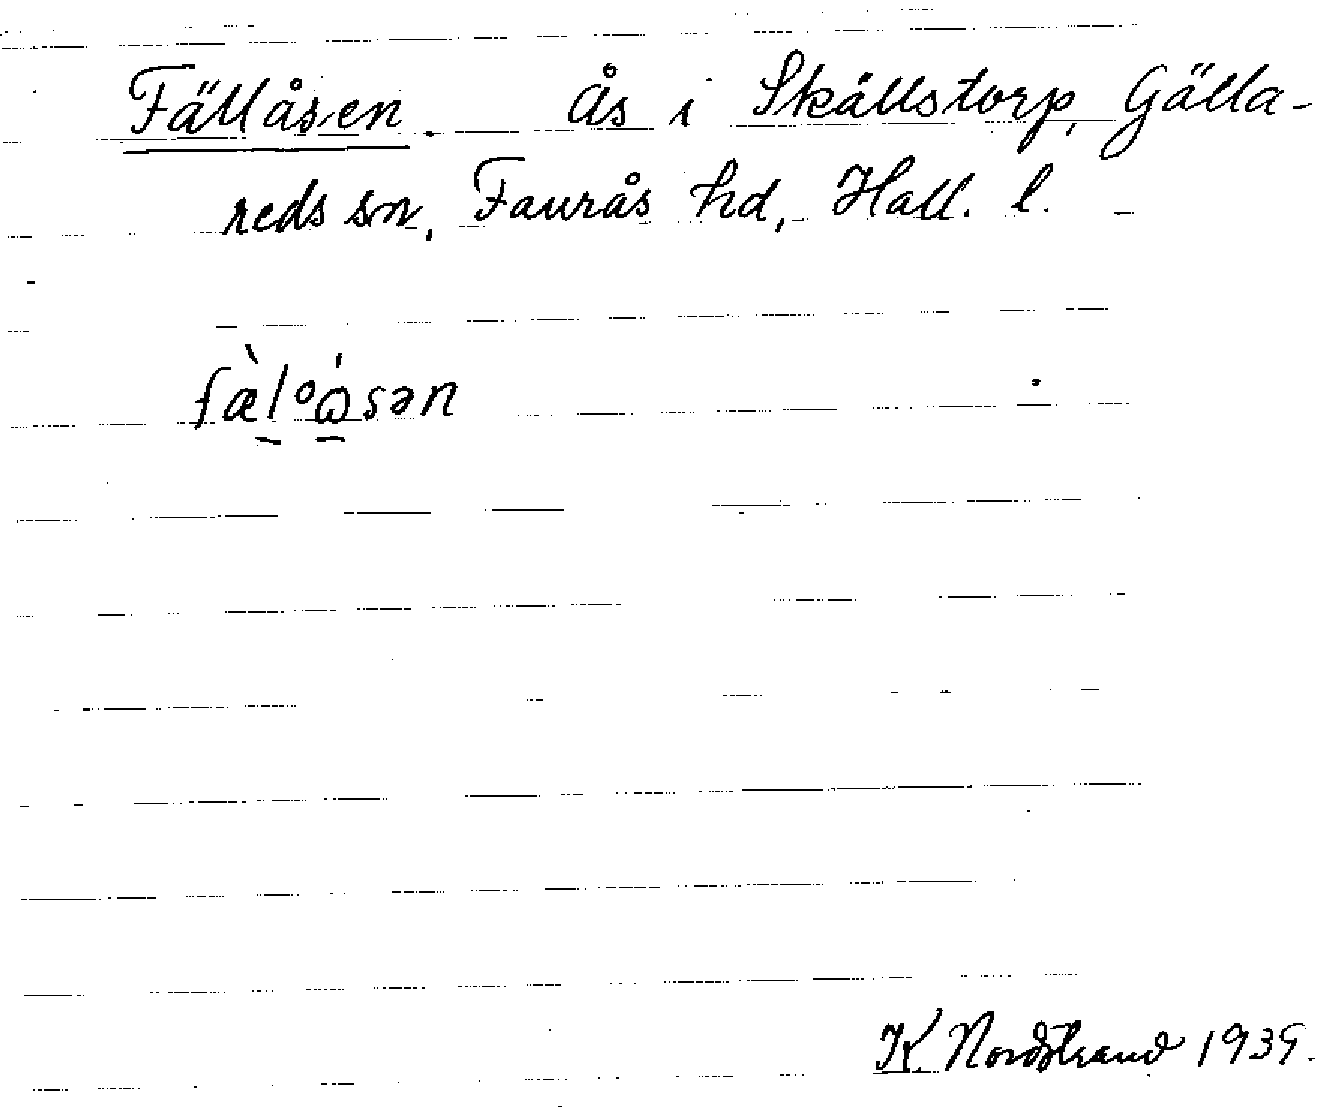 Fällåsen. Ås i Skällstorp, Gälla-
reds sn, Faurås hd, Hall. l.
fæ̀l°ɷ́sən
K. Nordstrand 1939.